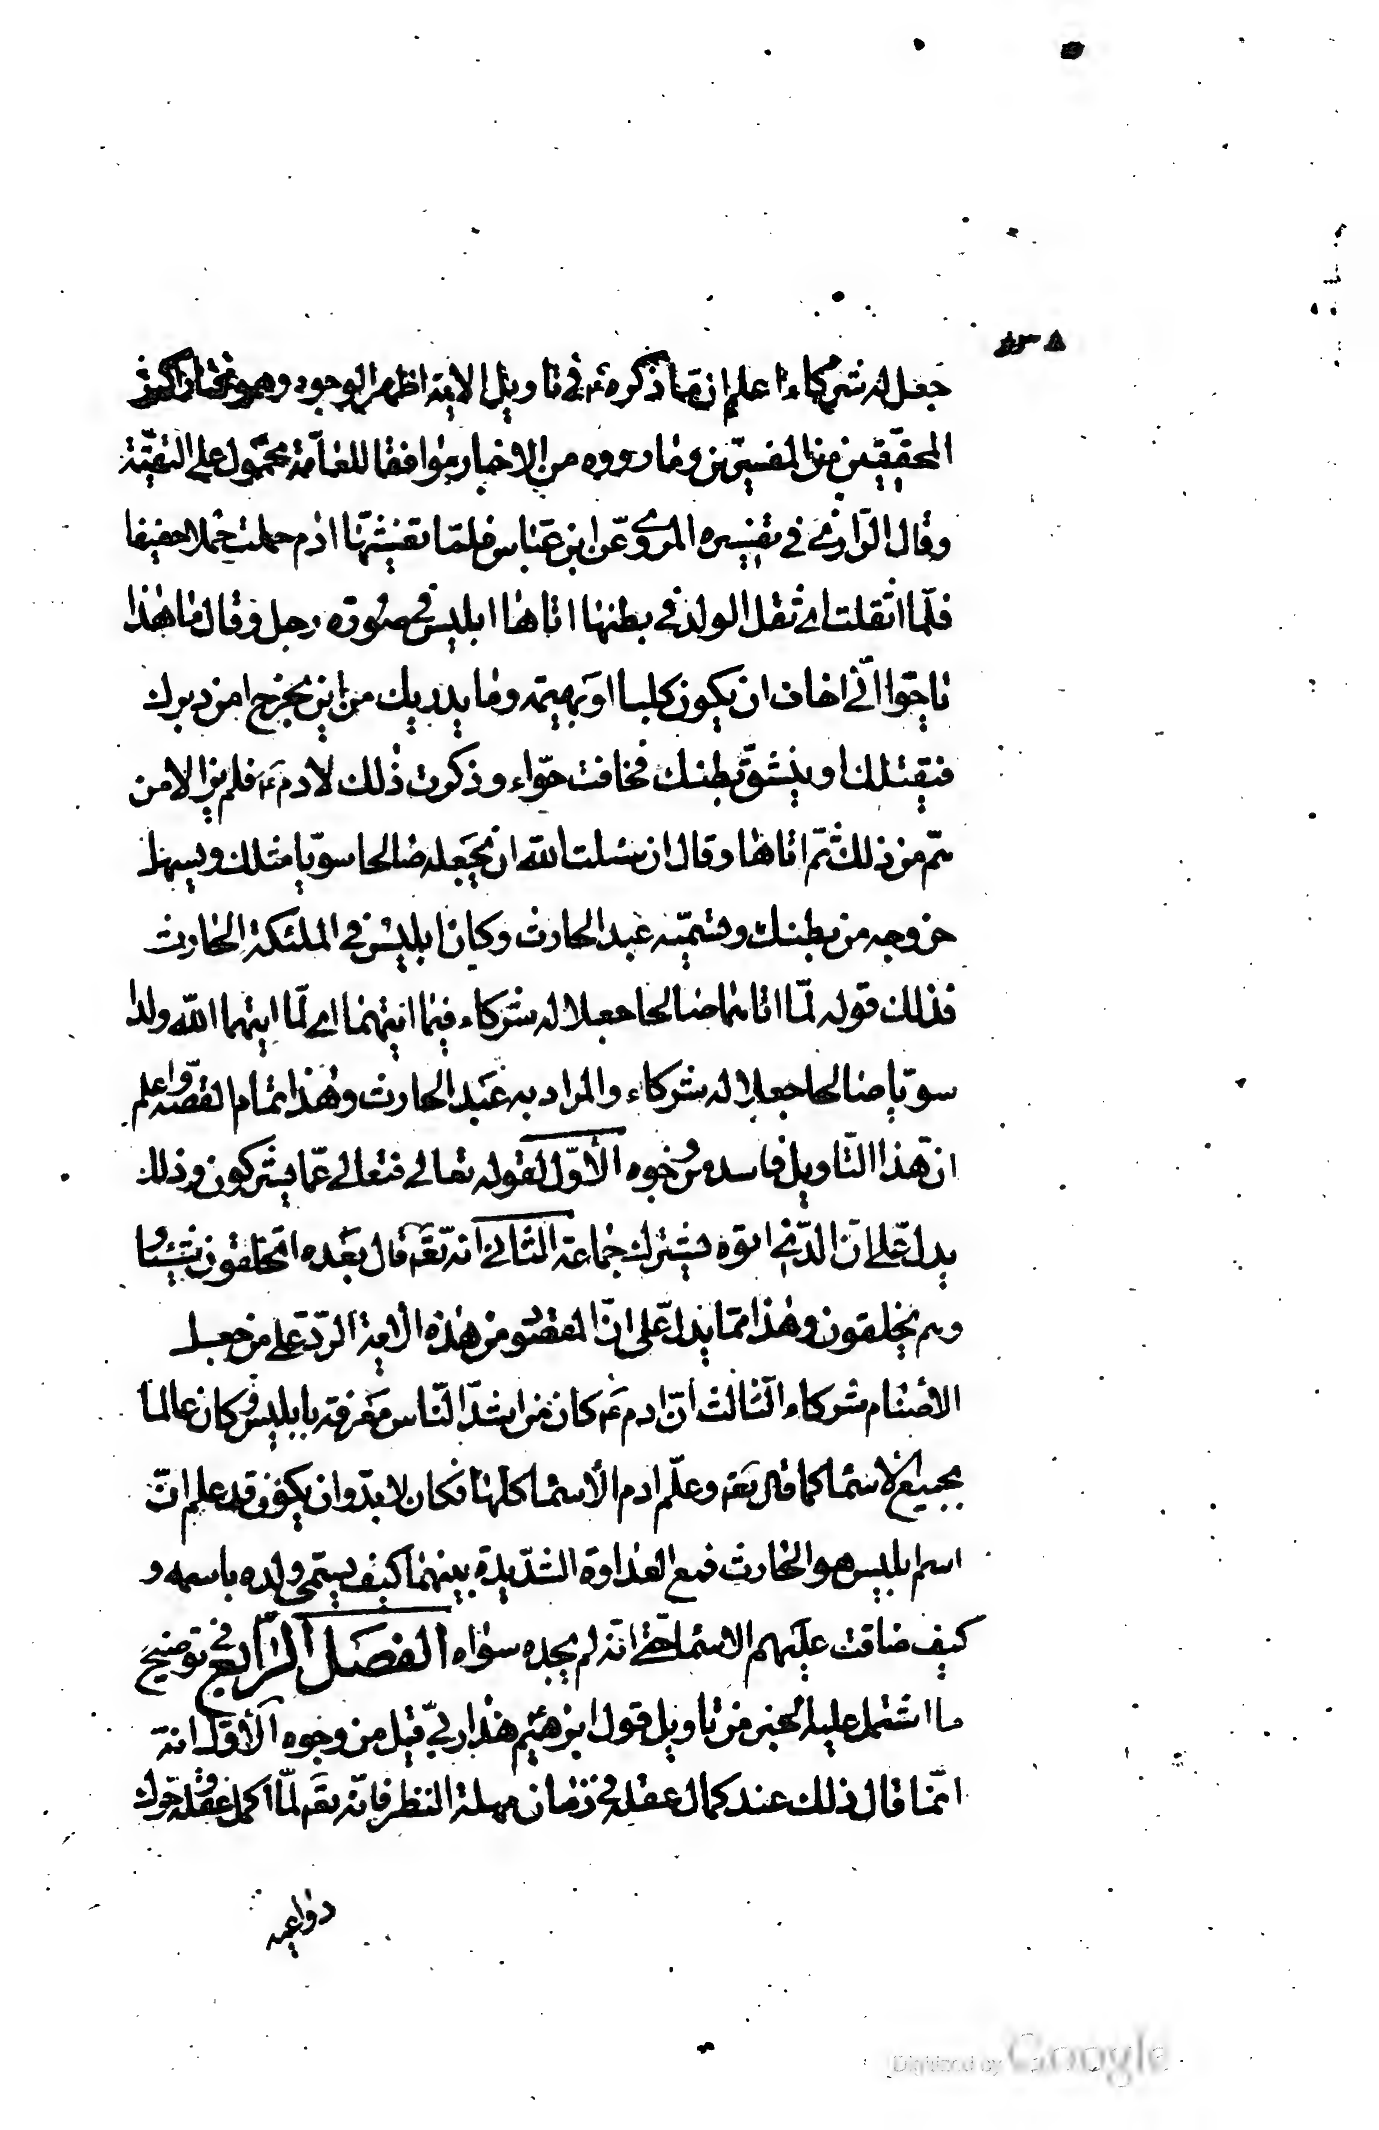 جعل له شركاء اعلم ان ما ذكره ع في تاويل الاية اظهر الوجوه وهو مختار اكثر
المحقّقين من المفسّرين وما رووه من الاخبار موافقا للعامّة محمول على التقيّة
وقال الرّازي في تفسيره المروي عن ابن عباس فلمّا تغشيّها ادم حملت حملا خفيفا
فلمّا اثقلت اي ثقل الولد في بطنها اتاها ابليس في صورة رجل وقال ما هذا
يا حوّا انّي اخاف ان يكون كلبا او بهيمة وما يدريك من اين يخرج امن دبرك
فيقتلك او ينشقّ بطنك فخافت حوّاء وذكرت ذلك لادم ع فلم يزالا من
همّ من ذلك ثم اتاها وقال ان سئلت الله ان يجعله صالحا سويّا مثلك ويسهل
خروجه من بطنك وتسمّيه عبد الحارث وكان ابليس في الملئكة الحارث
فذلك قوله لمّا اتاهما صالحا جعلا له شركاء فيما اتيهما اي لمّا اتيهما الله ولدا
سويّا صالحا جعلا له شركاء والمراد به عبد الحارث وهذا تمام القصّة واعلم
ان هذا التّاويل فاسد من وجوه الأوّل لقوله تعالى فتعالى عمّا يشركون وذلك
يدلّ على انّ الّذي اتوه بشرك جماعة الثاني انه تعه قال بعده ايخلقون شيئا و
هم يخلقون وهذا ممّا يدلّ على انّ المقصود من هذه الاية الردّ على من جعل
الأصنام شركاء الثالث انّ ادم ع كان من اشدّ النّاس معرفة بابليس وكان عالما
بجميع الاسماء كما قال تعه وعلّم ادم الأسماء كلّها فكان لا بدّ وان يكون قد علم انّ
اسم ابليس هو الحارث فمع العداوة الشّديدة بينهما كيف يسمّي ولده باسمه و
كيف ضاقت عليهم الاسماء حتى انه لم يجد سواه الفصل الرّابع في توضيح
ما اشتمل عليه الخبر من تاويل قول ابرهيم هذا ربّي قيل من وجوه الأوّل انه
انّما قال ذلك عند كمال عقله في زمان مهلة النظر فانّه تعه لمّا اكمل عقله وحرّك
دواعيه
Digitized by Google